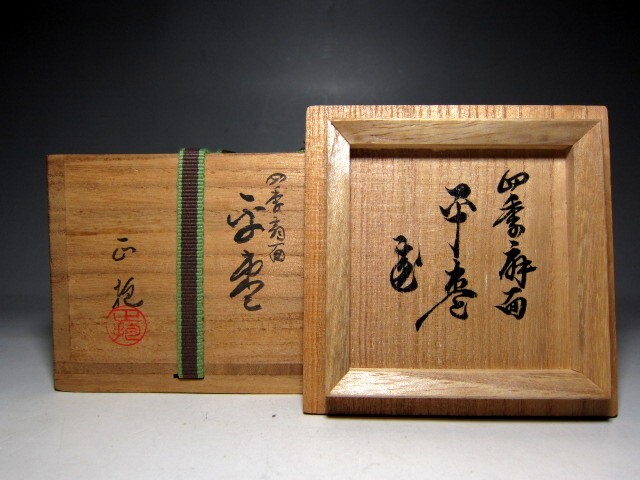 四季扇面
平棗
正抱
正抱
四季扇面
平棗